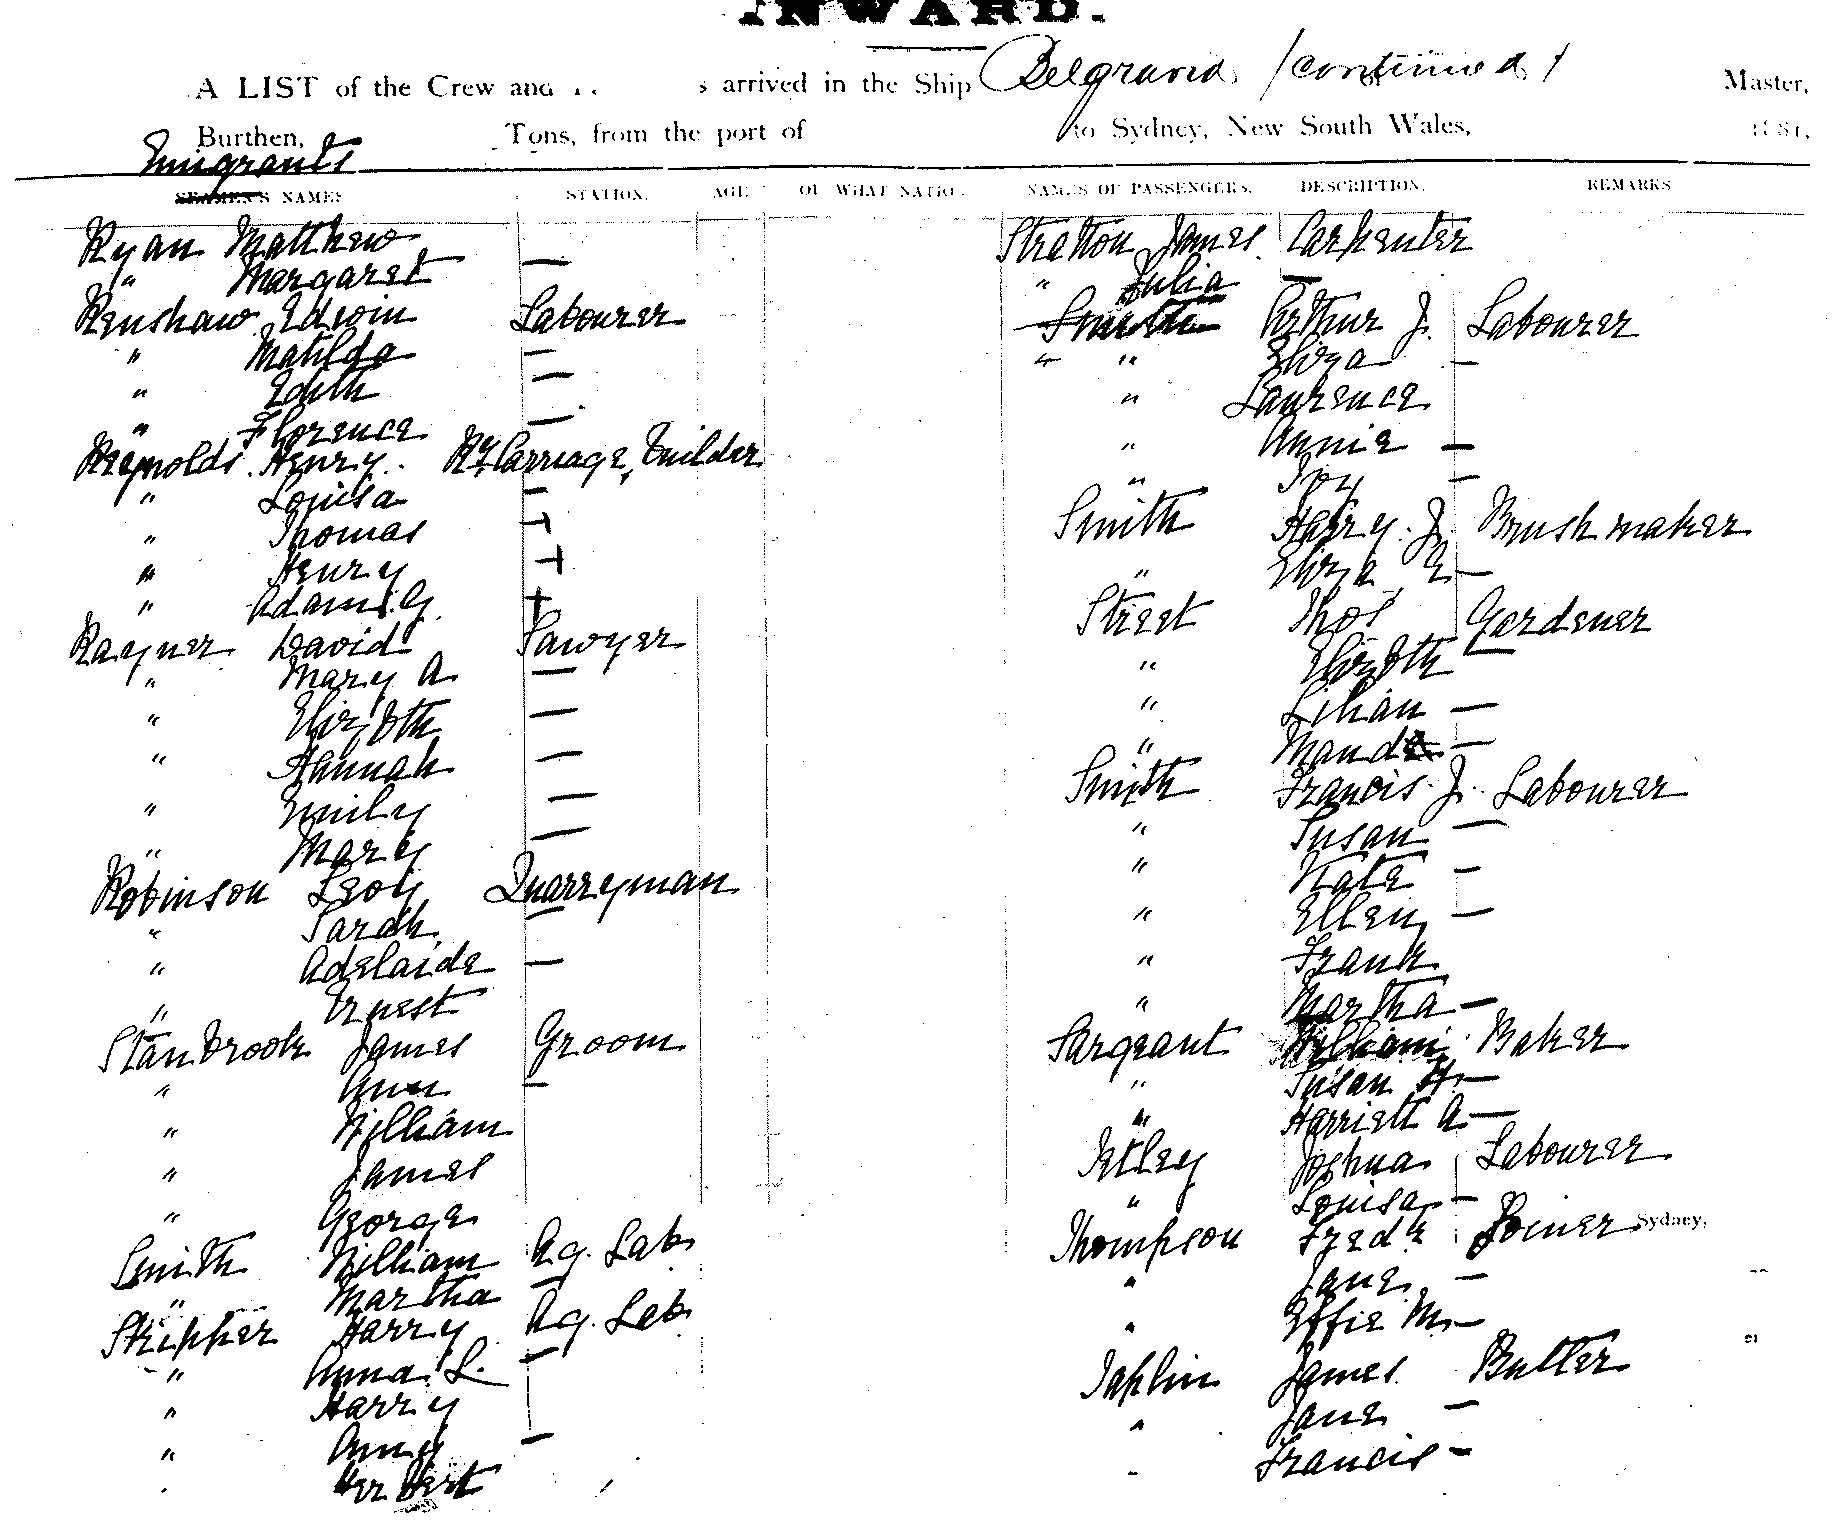 INWARD.
A LIST of the Crew and arrived in the Ship Belgravia (continued) of Master,
Burthen, Tons, from the port of to Sydney, New South Wales, 1881,
Emigrants
SEAMEN'S NAMES STATION. AGE OF WHAT NATION. NAMES OF PASSENGERS. DESCRIPTION. REMARKS
Ryan Matthew
" Margaret —
Renshaw Edwin Labourer
" Matilda —
" Edith —
" Florence —
Reynolds Henry Ry. Carriage Builder
" Louisa —
" Thomas
" Henry
" Adam G.
Rayner David Sawyer
" Mary A —
" Elizbth —
" Hannah —
" Emily —
" Mary —
Robinson Levi Quarryman
" Sarah —
" Adelaide —
" Ernest
Stanbrook James Groom
" Ann —
" William
" James
" George
Smith William Ag. Lab
" Martha —
Skipper Harry Ag. Lab
" Anna L. —
" Harry
" Amy —
Herbert
Stratton James Carpenter
" Julia —
Smith Arthur J. Labourer
" " Eliza —
" Laurence
" Annie —
" Ivy —
Smith Harry J. Brushmaker
" Eliza E —
Street Thos Gardener
" Elizbth —
" Lilian —
" Maud —
Smith Francis J. Labourer
" Susan —
" Kate —
" Ellen —
" Frank
" Martha —
Sargeant William Baker
" Susan H. —
" Harriett A. —
Joshua Labourer
" Louisa —
Thompson Fredk Joiner Sydney,
" Jane —
" Effie M. —
Taplin James Butler
" Jane —
Francis —